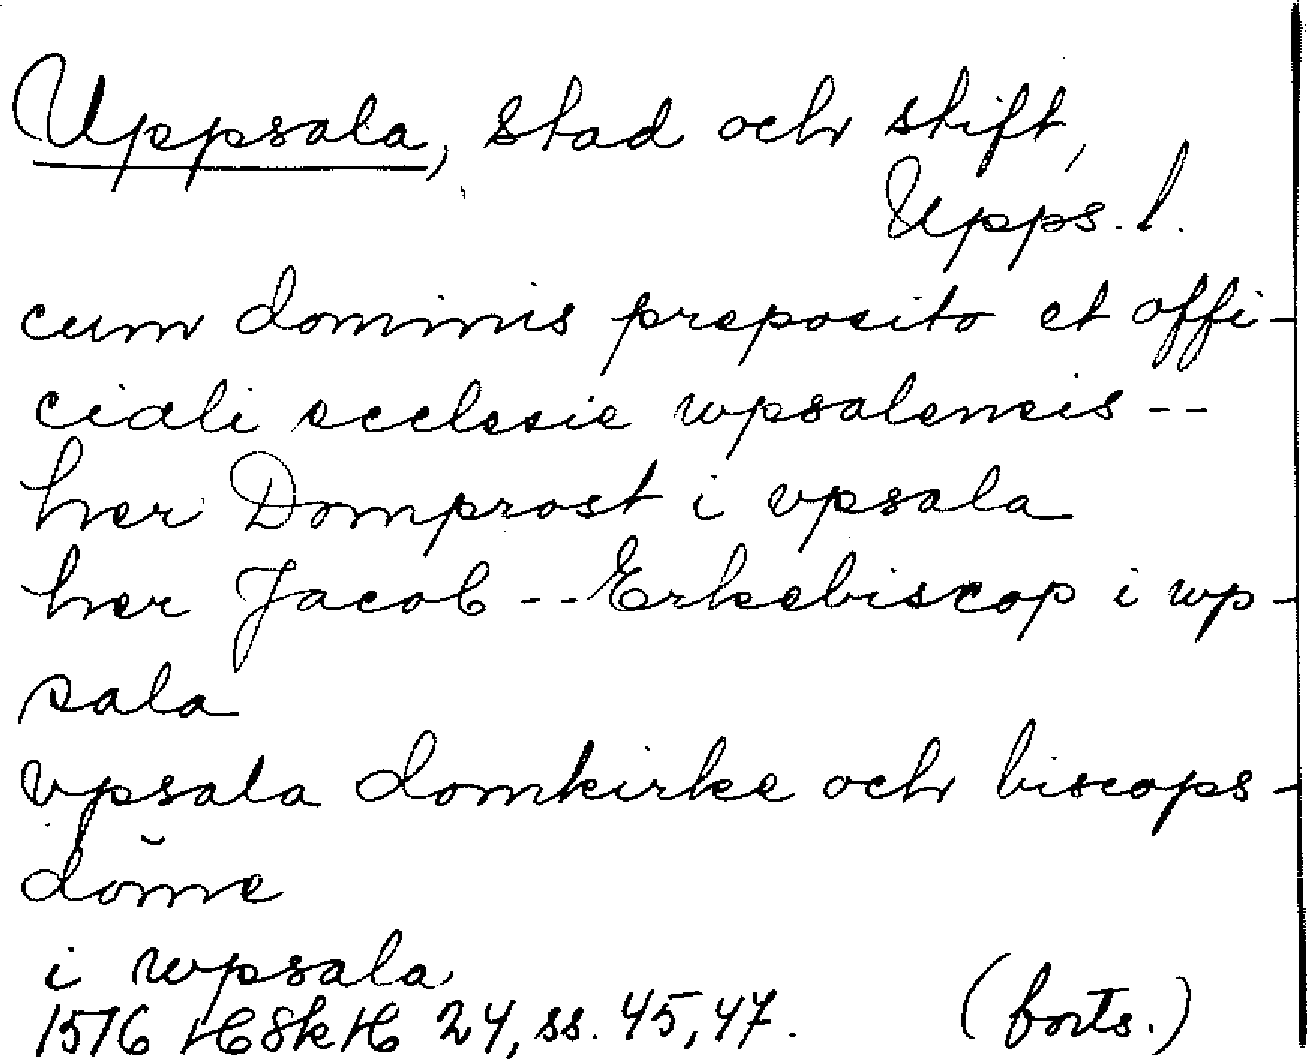 Uppsala, stad och stift,
Upps. l.
cum dominis preposito et offi-
ciali ecclesie wpsalensis --
her Domprost i vpsala
her Jacob -- Erkebiscop i wp-
sala
vpsala domkirke och biscops-
döme
i wpsala
1516 HSkH 24, ss. 45, 47. (forts.)